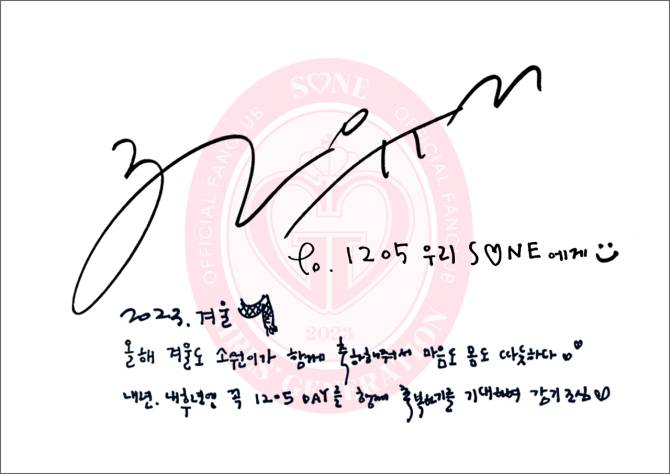 SONE
OFFICIAL FANCLUB
OFFICIAL FANCLUB
To. 1205 우리 S♡NE 에게
2023. 겨울
2023
올해 겨울도 소원이가 함께 축하해줘서 마음도 몸도 따듯하다
GIRLS' GENERATION
내년. 내후년엔 꼭 1205 DAY를 함께 축복하기를 기대하며 감기조심